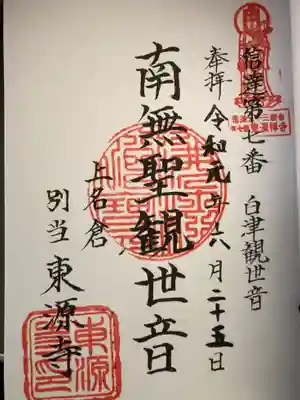 信達第七番 白津観世音
奉拝 令和元年六月二十五日
南無聖観世音
上名倉
別当 東源寺